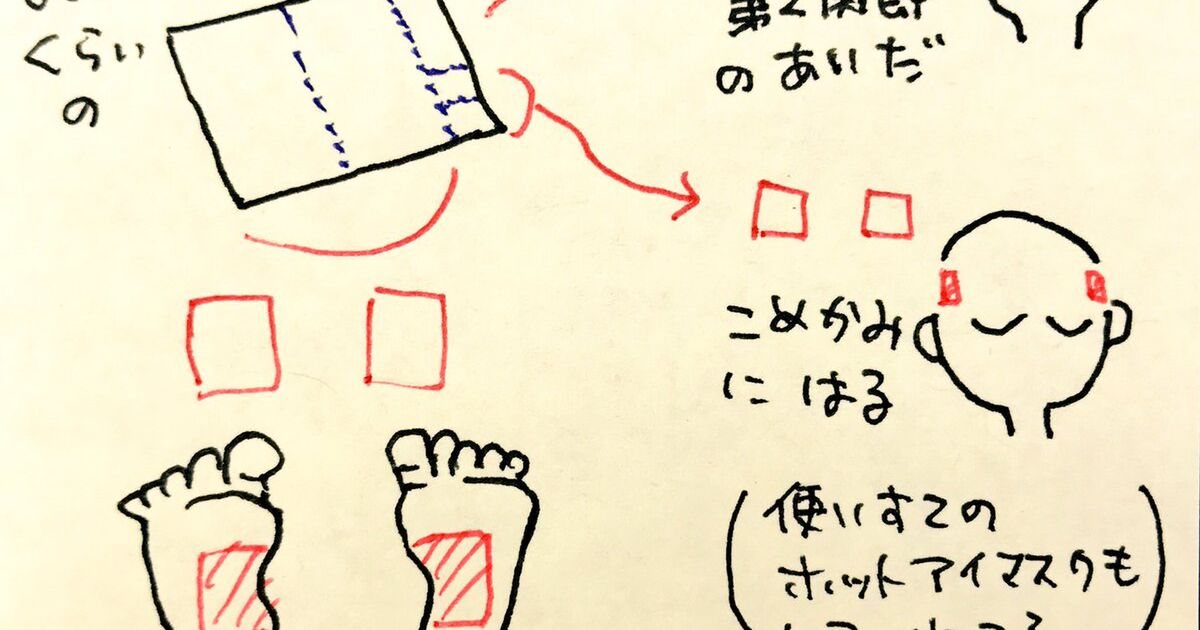 くらい
の
第2関節
のあいだ
こめかみ
にはる
(使いすての
ホットアイマスクも